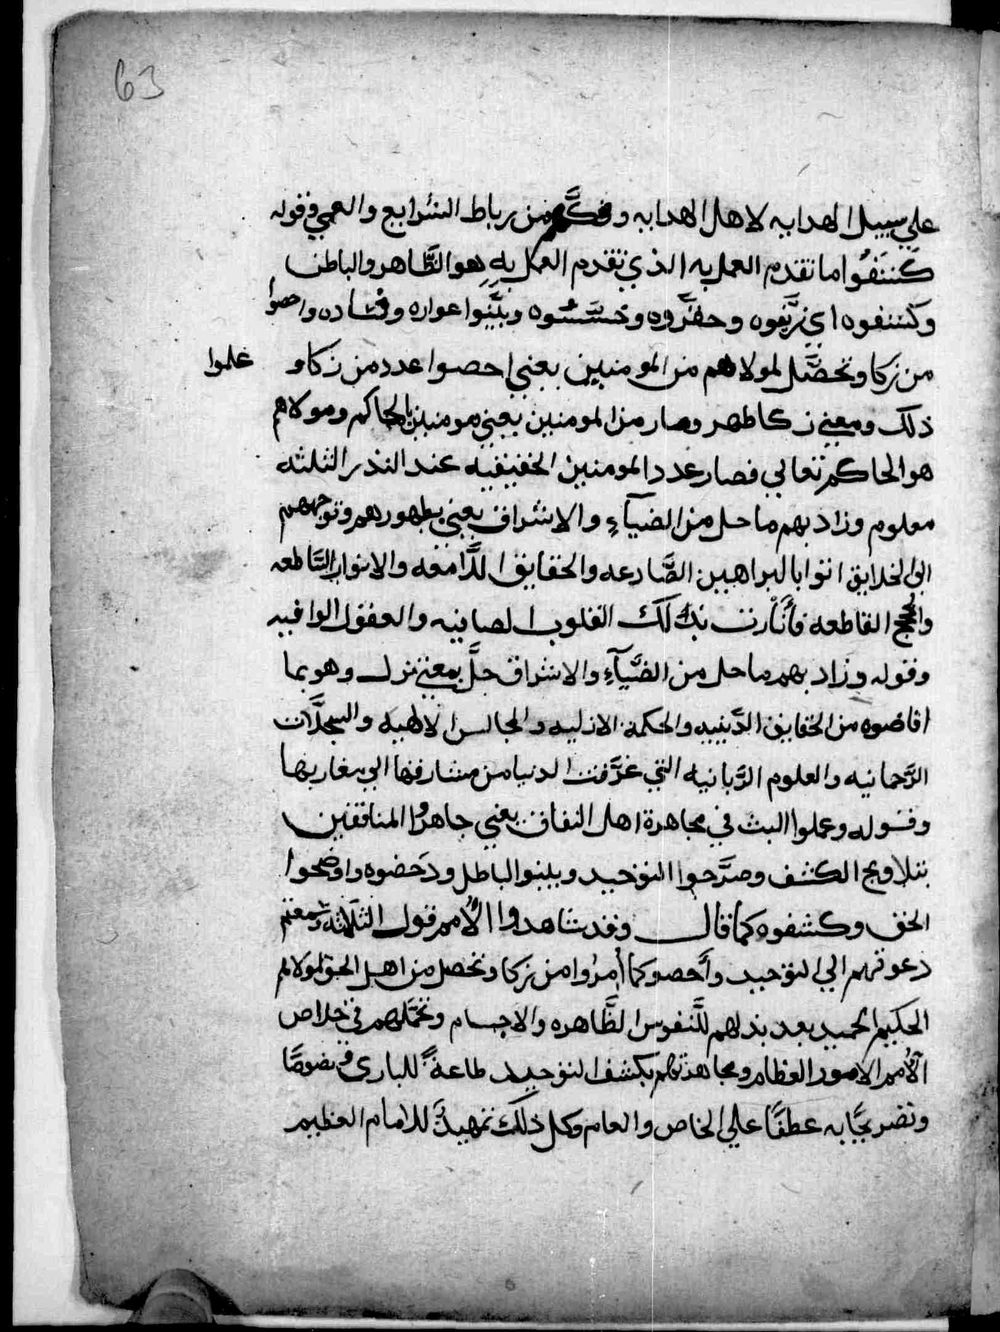 63
علي سبيل الهدايه لاهل الهدايه وفكهم من رباط الشرايع والعمي وقوله
كشفوا ما تقدم العمل به الذي تقدم العمل به هو الظاهر والباطن
وكشفوه اي زيّفوه وحقّروه وخسّسوه وبيّنوا عواره وفساده واحصوا
من زكا وتحصّل لمولاهم من المومنين يعني احصوا عدد من زكا و
علموا
ذلك ومعني زكا طهر وصار من المومنين يعني مومنين بالحاكم ومولاهم
هو الحاكم تعالي فصار عدد المومنين الحقيقيه عند النذر الثلثه
معلوم وزاد بهم ما حل من الضيآء والاشراف يعني بظهورهم وتوجههم
الى الخلايق اتوا بالبراهين الصّادعه والحقايق الدّامغه والانوار السّاطعه
والحجج القاطعه فأنارت بذلك القلوب الصافيه والعقول الوافيه
وقوله وزاد بهم ما حل من الضّيآء والاشراق حلّ بمعني نزل وهو بما
افاضوه من الحقايق الدّينيه والحكمة الازليه والمجالس الالاهيه والسجلّات
الرّحمانيه والعلوم الرّبانيه التي غرّقت الدنيا من مشارقها الي مغاربها
وقوله وعملوا البث في مجاهرة اهل النفاق يعني جاهروا المنافقين
بتلاويح الكشف وصرّحوا التوحيد وبينوا الباطل ودحضوه واوضحوا
الحق وكشفوه كما قال وقد شاهدوا الأمم قول الثلاثه وسمعتم
دعوتهم الي التوحيد وأحصوا كما أمروا من زكا وتحصل من اهل الحق لمولاهم
الحكيم الحميد بعد بذلهم للنّفوس الطّاهره والاجسام وتحمّلهم في خلاص
الأمم الامور العظام ومجاهدتهم بكشف التوحيد طاعةً للباري
وتضر عطفًا علي الخاص والعام وكل ذلك تمهيدًا للامام العظيم